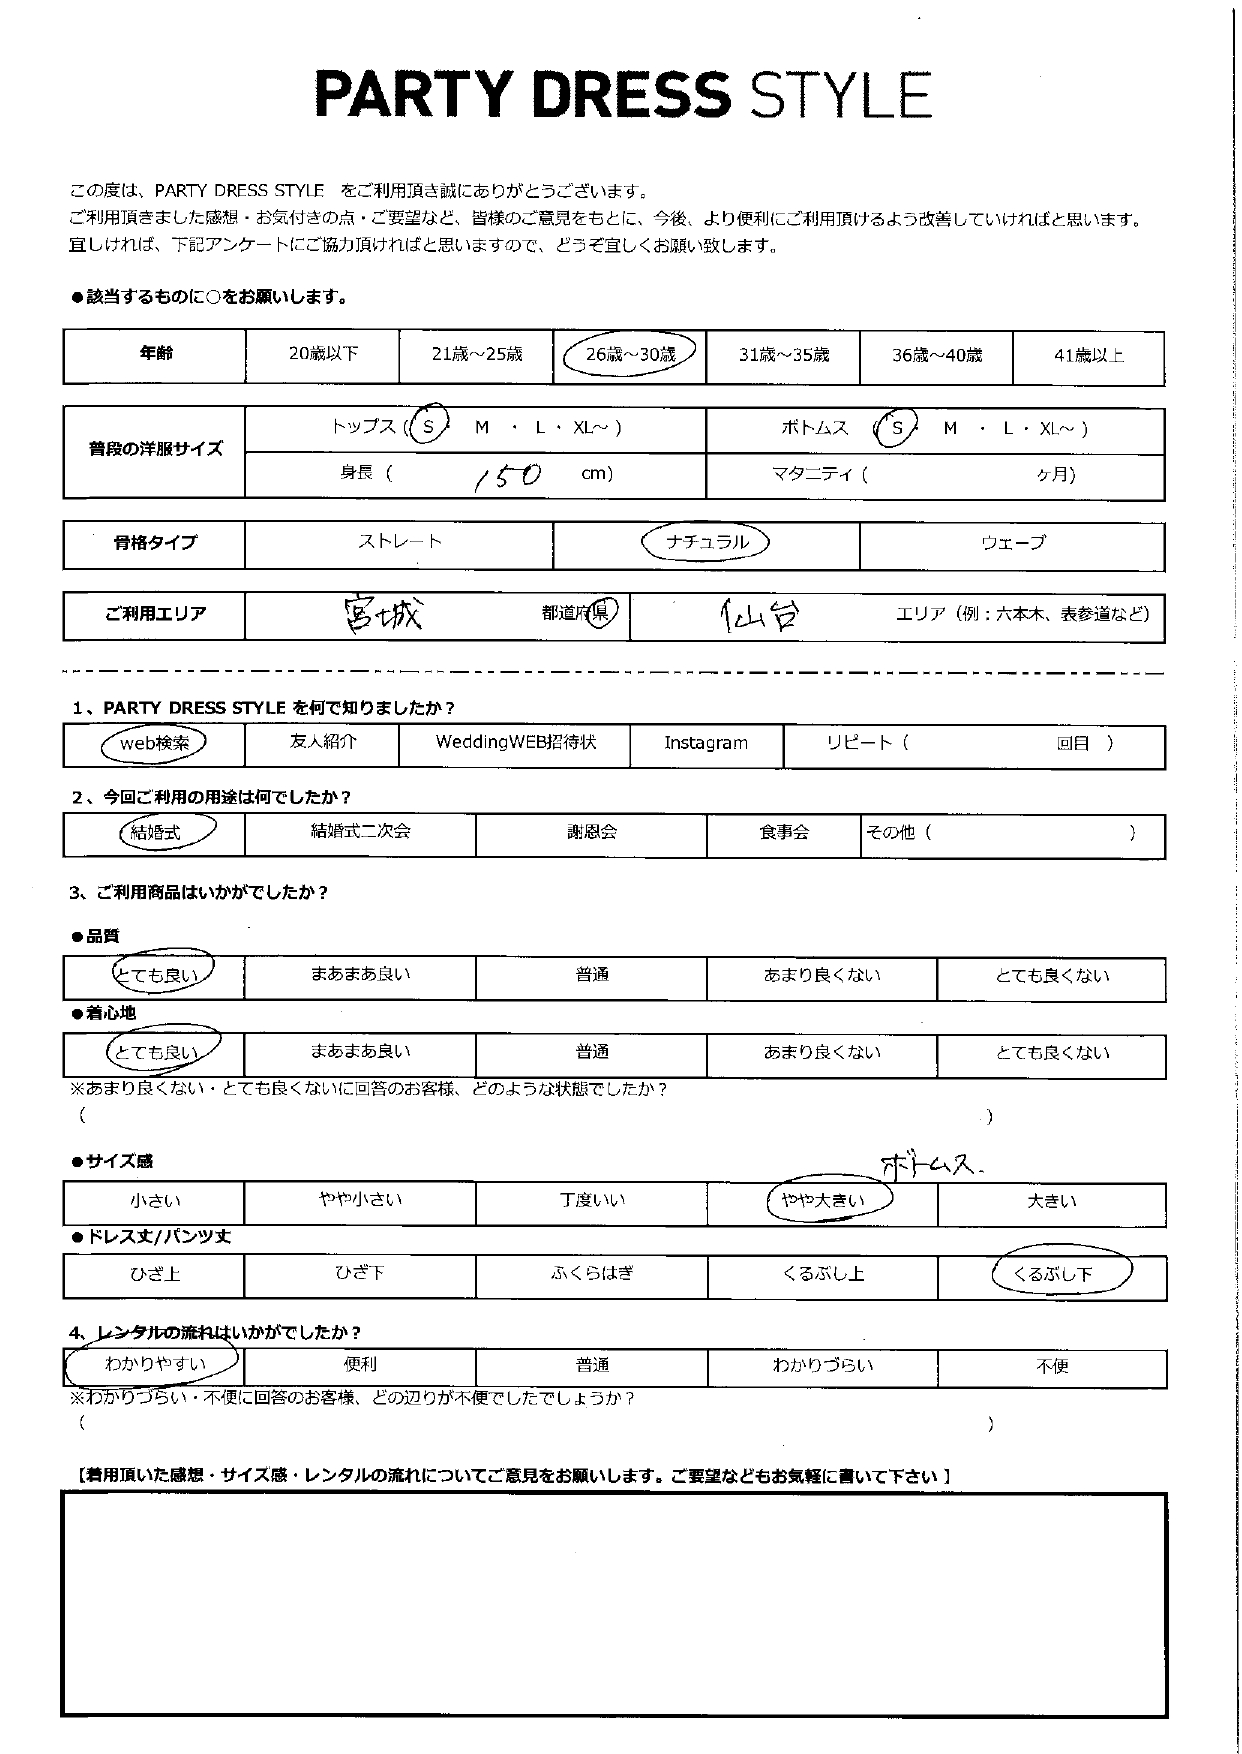 PARTY DRESS STYLE
この度は、PARTY DRESS STYLE をご利用頂き誠にありがとうございます。
ご利用頂きました感想・お気付きの点・ご要望など、皆様のご意見をもとに、今後、より便利にご利用頂けるよう改善していければと思います。
宜しければ、下記アンケートにご協力頂ければと思いますので、どうぞ宜しくお願い致します。
●該当するものに○をお願いします。
年齢 20歳以下 21歳～25歳 26歳～30歳 31歳～35歳 36歳～40歳 41歳以上
普段の洋服サイズ
トップス (S・ M ・ L・ XL～ ) ボトムス (S・ M ・ L・ XL～ )
身長 ( 150 cm) マタニティ ( ヶ月)
骨格タイプ ストレート ナチュラル ウェーブ
ご利用エリア 宮城 都道府県 仙台 エリア（例：六本木、表参道など）
1、PARTY DRESS STYLE を何で知りましたか？
web検索 友人紹介 WeddingWEB招待状 Instagram リピート ( 回目 )
2、今回ご利用の用途は何でしたか？
結婚式 結婚式二次会 謝恩会 食事会 その他 ( )
3、ご利用商品はいかがでしたか？
●品質
とても良い まあまあ良い 普通 あまり良くない とても良くない
●着心地
とても良い まあまあ良い 普通 あまり良くない とても良くない
※あまり良くない・とても良くないに回答のお客様、どのような状態でしたか？
( )
●サイズ感 ボトムス.
小さい やや小さい 丁度いい やや大きい 大きい
●ドレス丈/パンツ丈
ひざ上 ひざ下 ふくらはぎ くるぶし上 くるぶし下
4、レンタルの流れはいかがでしたか？
わかりやすい 便利 普通 わかりづらい 不便
※わかりづらい・不便に回答のお客様、どの辺りが不便でしたでしょうか？
( )
【着用頂いた感想・サイズ感・レンタルの流れについてご意見をお願いします。ご要望などもお気軽に書いて下さい】